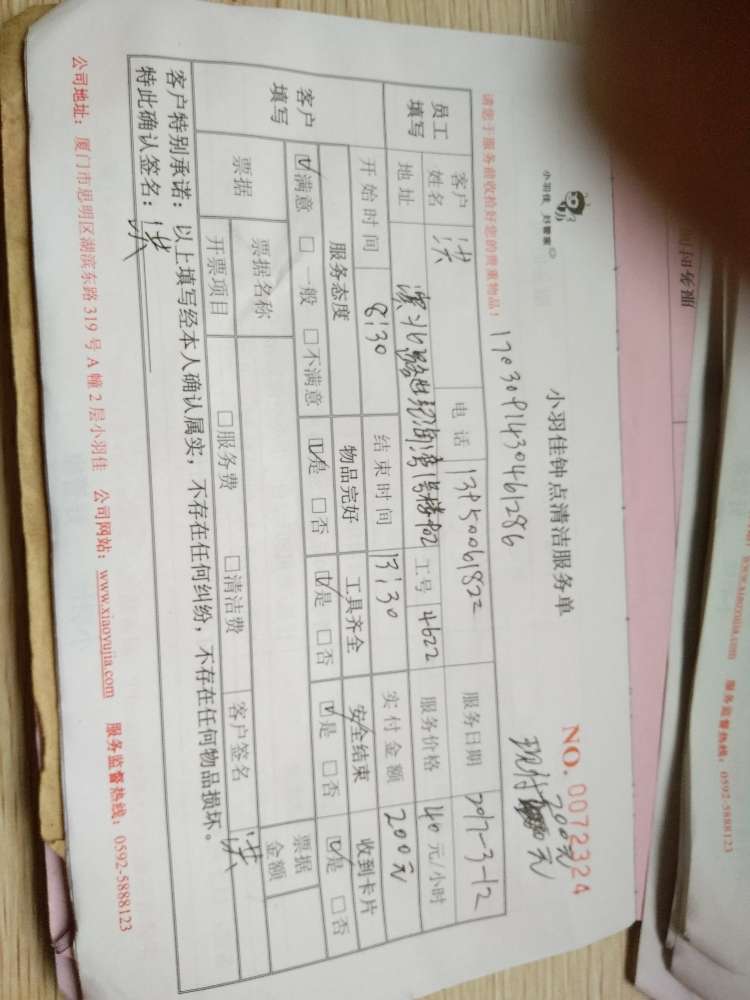 小羽佳 好管家
小羽佳钟点清洁服务单
NO. 0072324
1703091430461286
现付
200元
请您于服务前收拾好您的贵重物品!
员工填写
客户姓名 洪 电话 13950061822 服务日期 2017-3-12
地址 工号 4622 服务价格 40 元/小时
开始时间 8:30 结束时间 13:30 实付金额 200元
客户填写
服务态度 物品完好 工具齐全 安全结束 收到卡片
☑满意 □一般 □不满意 ☑是 □否 ☑是 □否 ☑是 □否 ☑是 □否
票据 票据名称 票据金额
开票项目 □服务费 □清洁费 客户签名 洪
客户特别承诺: 以上填写经本人确认属实, 不存在任何纠纷, 不存在任何物品损坏。
特此确认签名: 洪
公司地址: 厦门市思明区湖滨东路 319 号 A 幢 2 层小羽佳 公司网站: www.xiaoyujia.com 服务监督热线: 0592-5888123
服务时间
www.xiaoyujia.com 服务监督热线: 0592-5888123